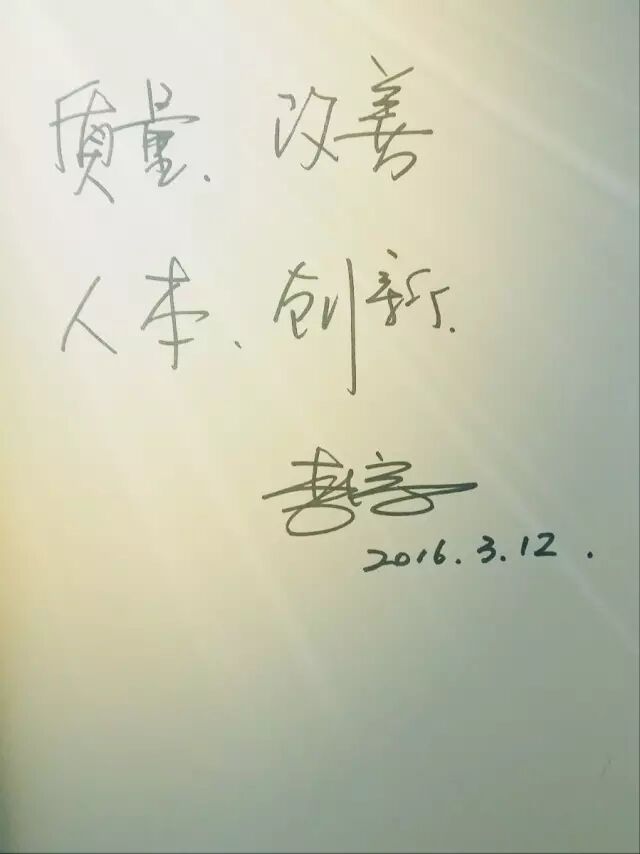 质量、改善
人本、创新.
2016.3.12.